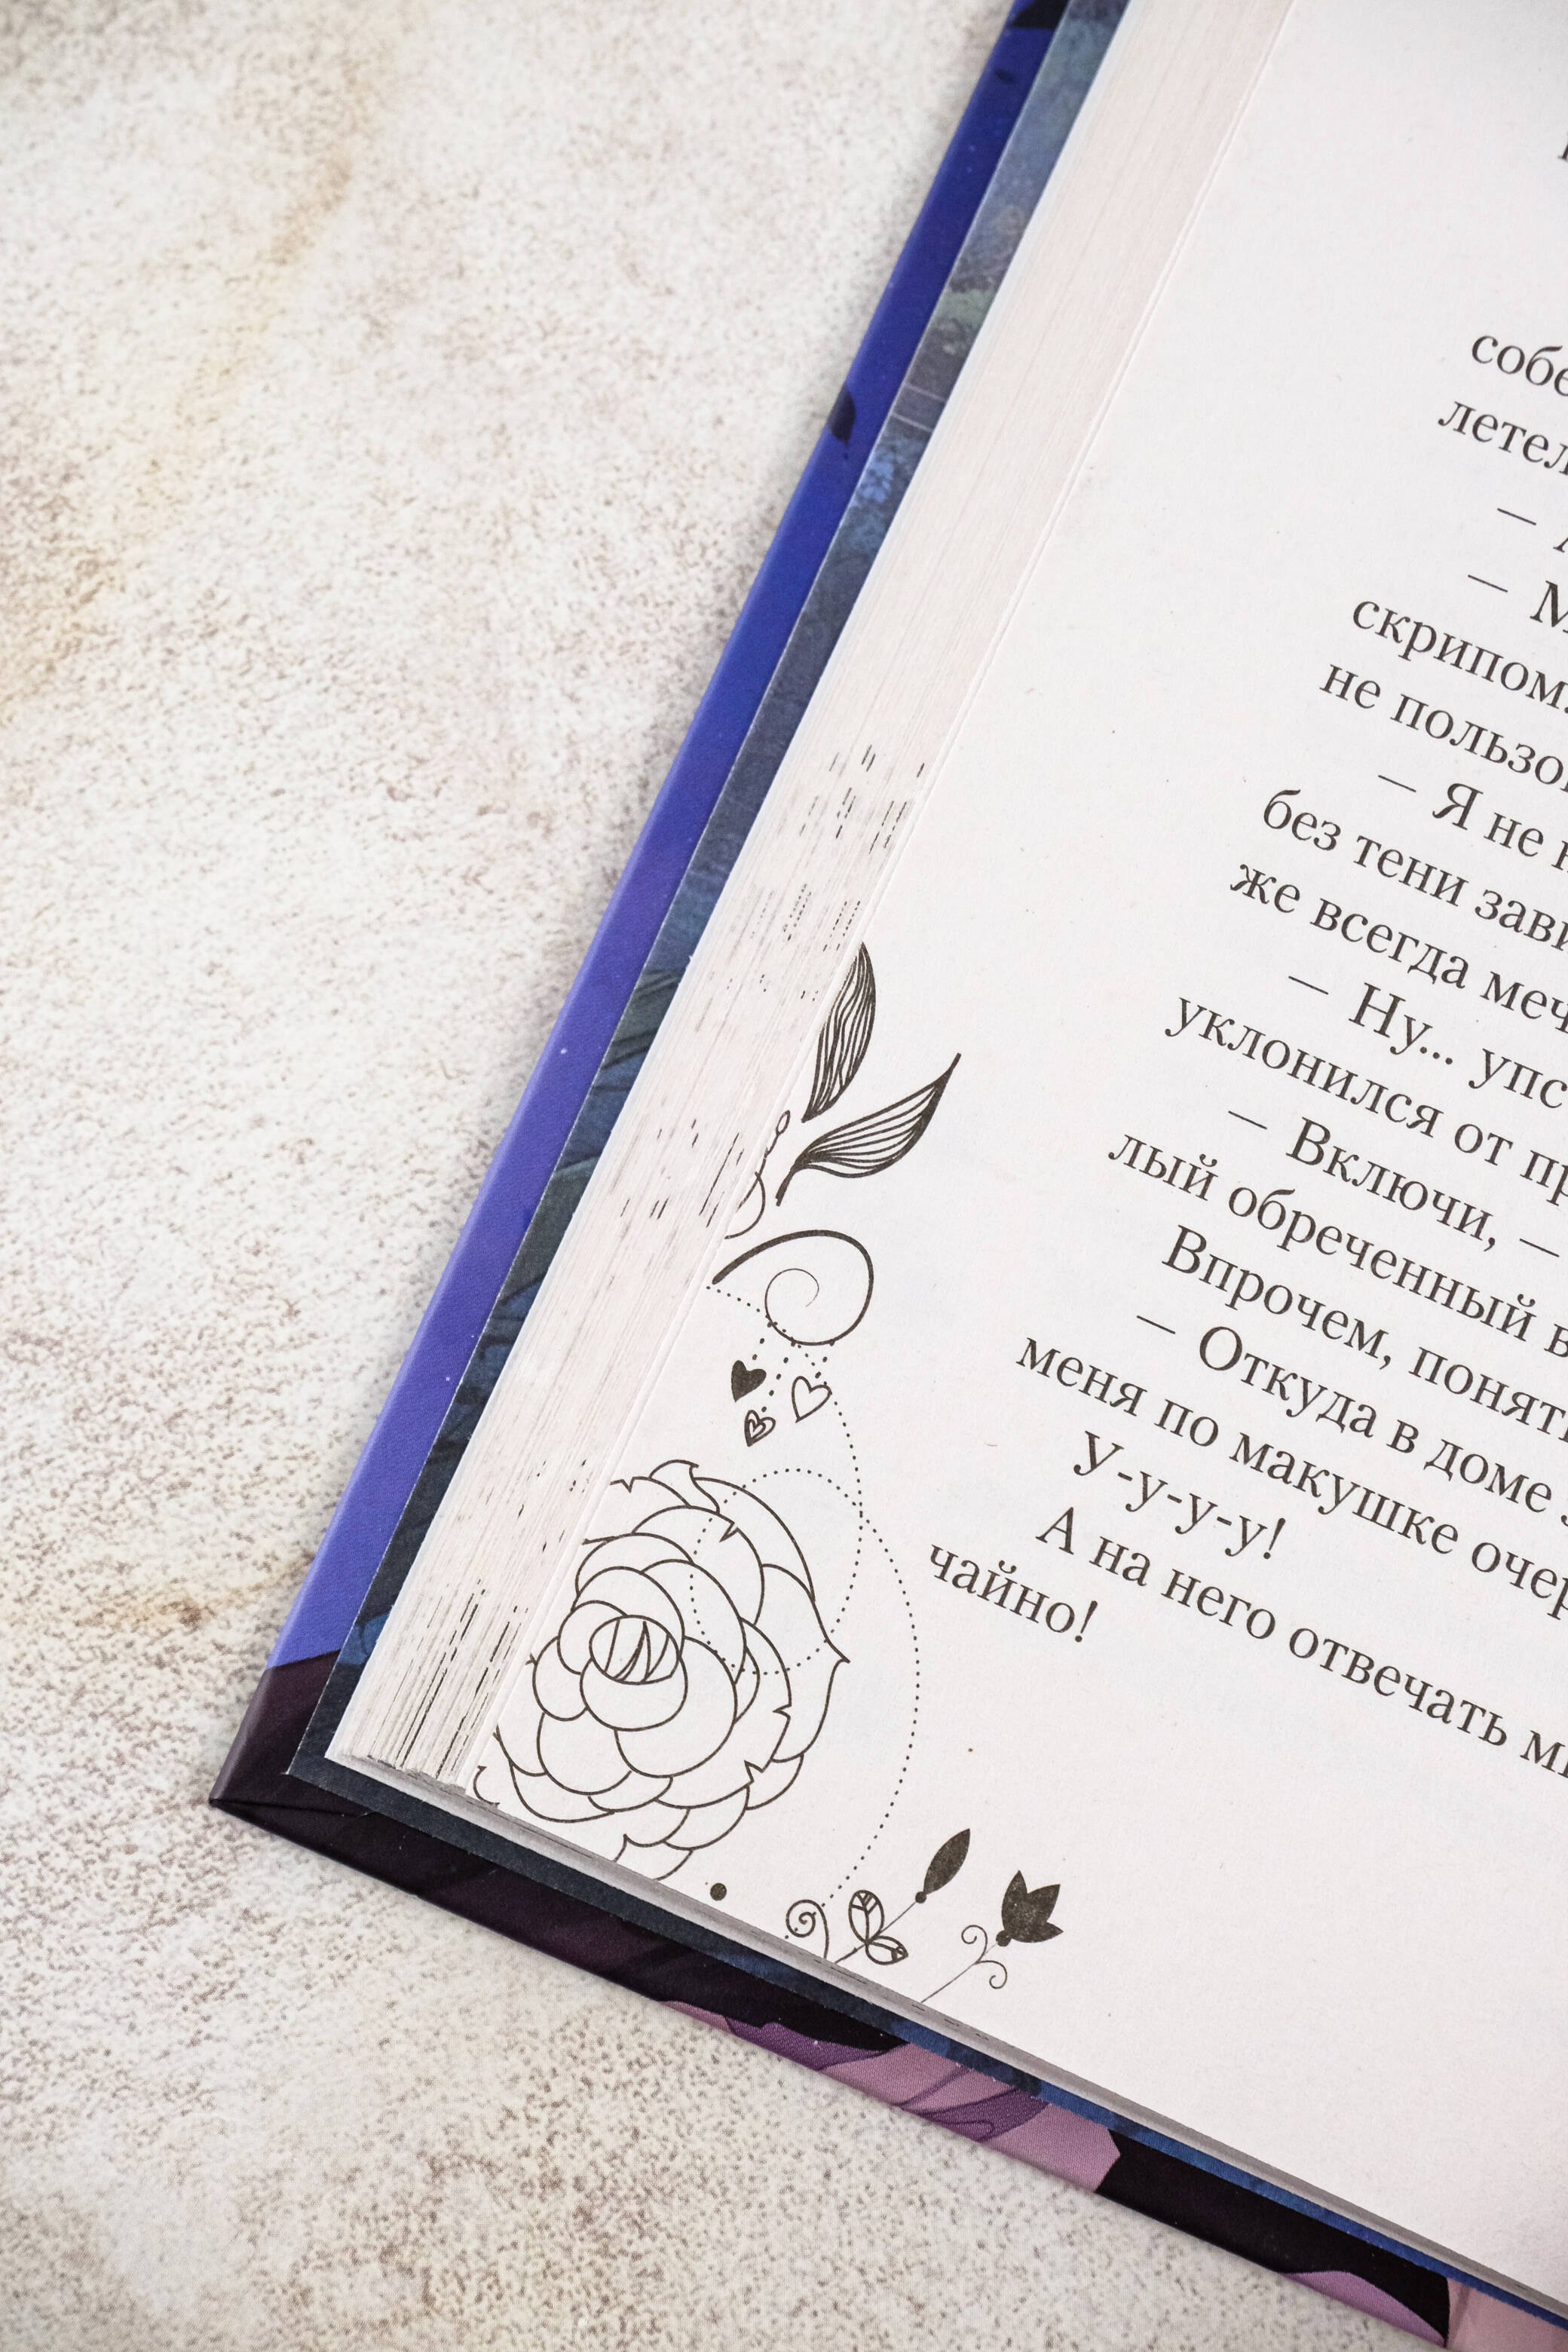 собе
летел
–
– М
скрипом.
не пользо
– Я не н
без тени зави
же всегда меч
– Ну... упс
уклонился от пр
– Включи, –
лый обреченный в
Впрочем, понят
– Откуда в доме
меня по макушке очер
У-у-у-у!
А на него отвечать м
чайно!